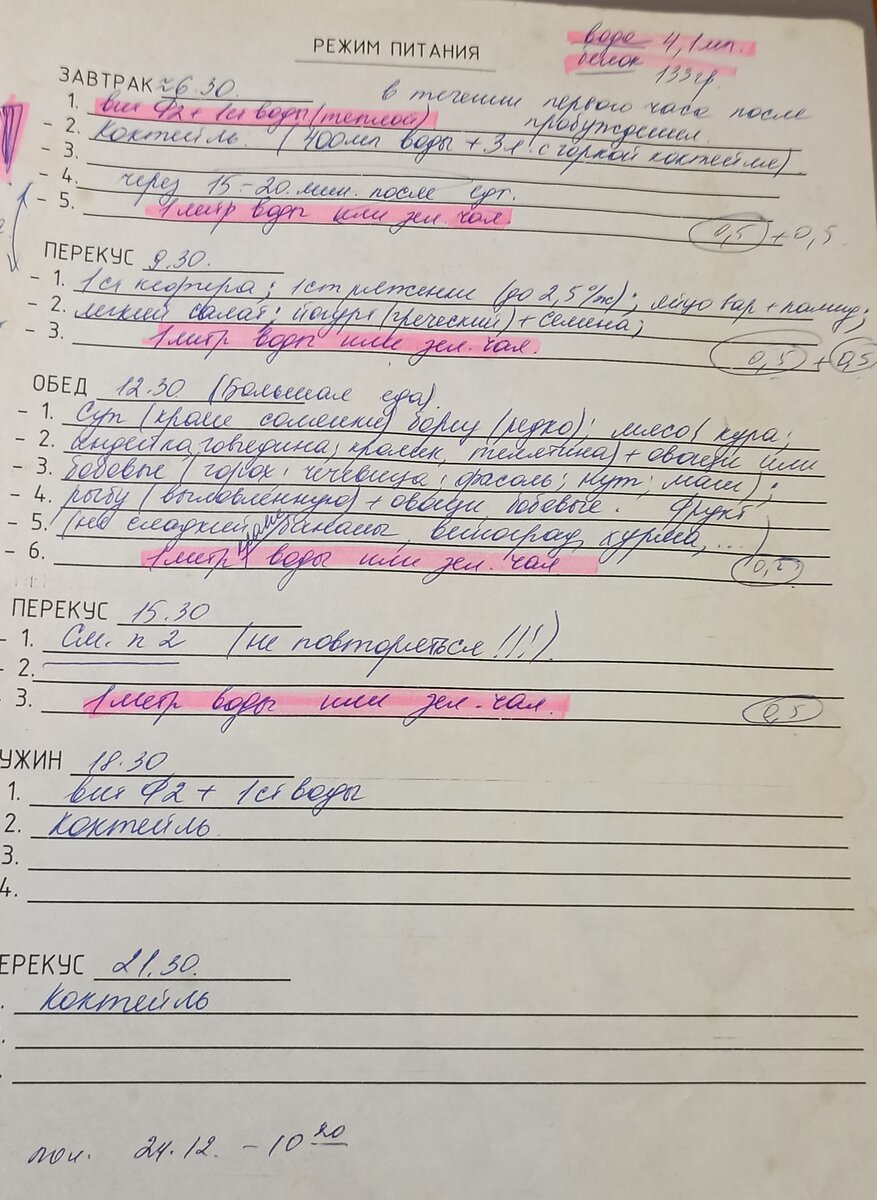 РЕЖИМ ПИТАНИЯ
вода 4,1 мл.
белок 133 гр.
ЗАВТРАК ≈6.30. в течении первого часа после
1. вит Ф2 + 1 ст воды (теплой) пробуждения
- 2. Коктейль. (400мл воды + 3л. с горкой коктейля)
- 3.
- 4. через 15-20 мин. после едт.
- 5. 1 литр воды или зел. чая 0,5 + 0,5
ПЕРЕКУС 9.30.
- 1. 1 ст кефира; 1 ст ряженки (до 2,5% ж); яйцо вар + помид;
- 2. легкий салат; йогурт (греческий) + семена;
- 3. 1 литр воды или зел. чая. 0,5 + 0,5
ОБЕД 12.30 (Большая еда).
- 1. Суп (кроме солянки) борщ (редко); мясо (кура;
- 2. индейка, говедина, кролик, телятина) + овощи или
- 3. бобовые (горох; чечевица; фасоль; нут; маш);
- 4. рыбу (выловленную) + овощи бобовые. Фрукт
- 5. (не сладкий кроме бананы, виноград, хурма, ...)
- 6. 1 литр воды или зел. чая 0,5
ПЕРЕКУС 15.30
- 1. См. п 2 (не повторяться!!!)
- 2.
3. 1 литр воды или зел. чая. 0,5
УЖИН 18.30
1. вит Ф2 + 1 ст воды
2. Коктейль
3.
4.
ЕРЕКУС 21.30.
. Коктейль
.
24.12. - 10 20